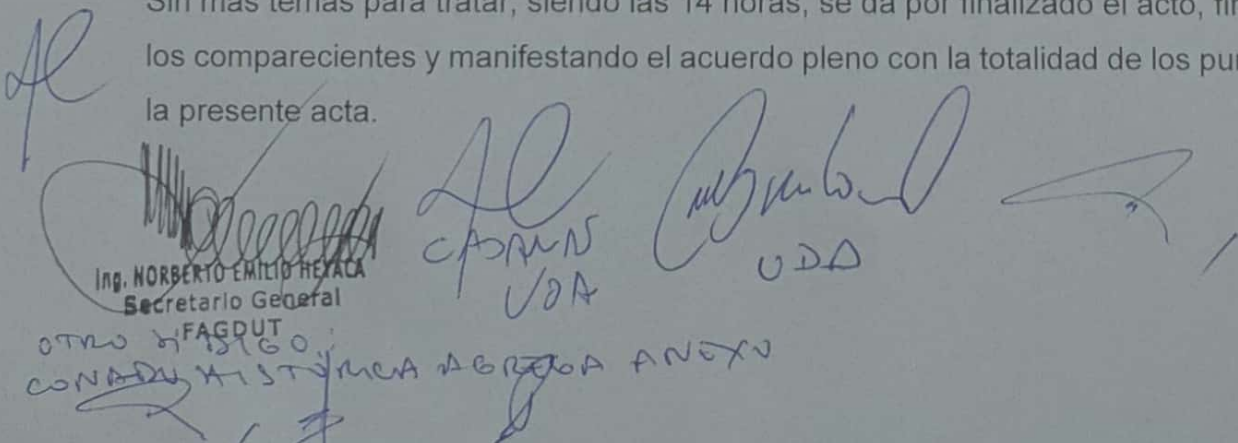 Sin más temas para tratar, siendo las 14 horas, se da por finalizado el acto,
los comparecientes y manifestando el acuerdo pleno con la totalidad de los
la presente acta.
UDA
UDA
Ing. NORBERTO EMILIO HEYACA
Secretario General
FAGDUT
OTRO SI DIGO:
CONADU HISTÓRICA AGREGA ANEXO